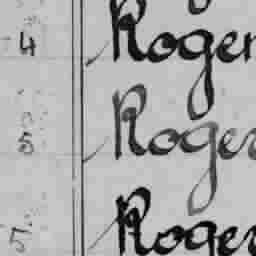 4 Roger
5 Roger
5 Roger